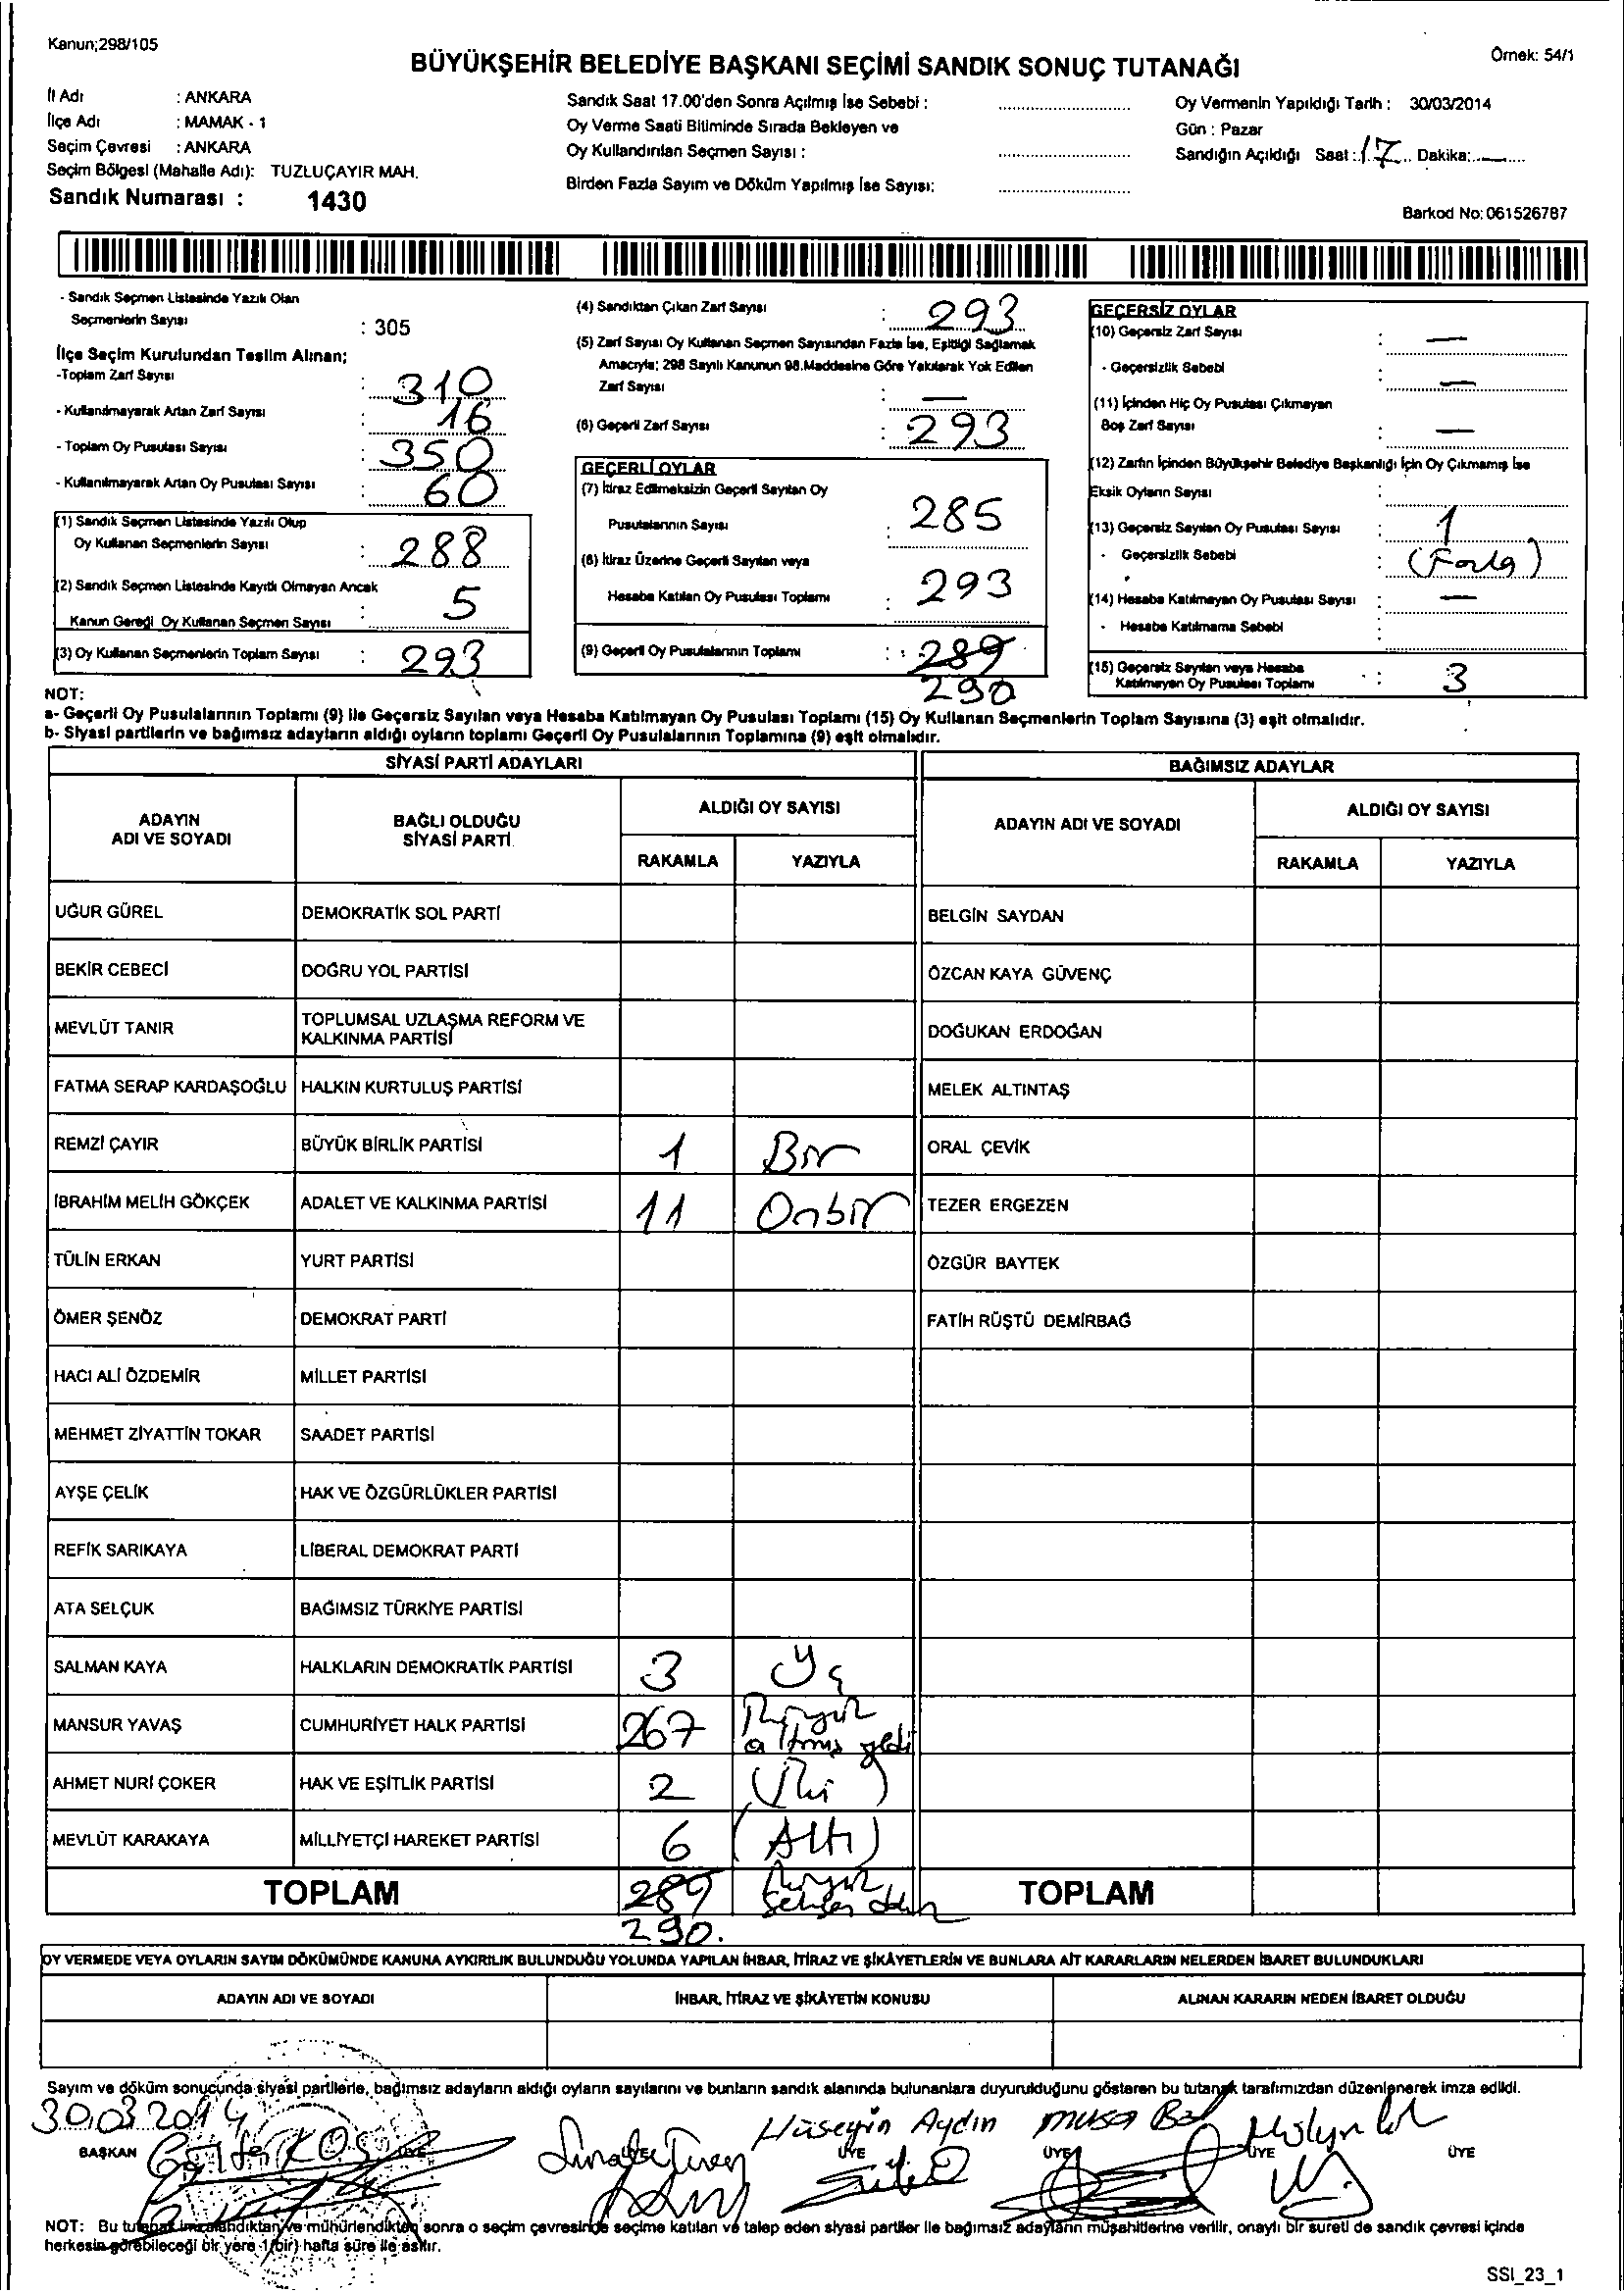 Kanun;298/105
BÜYÜKŞEHİR BELEDİYE BAŞKANI SEÇİMİ SANDIK SONUÇ TUTANAĞI
Örnek: 54/1
İl Adı : ANKARA
İlçe Adı : MAMAK - 1
Seçim Çevresi : ANKARA
Seçim Bölgesi (Mahalle Adı): TUZLUÇAYIR MAH.
Sandık Numarası : 1430
Sandık Saat 17.00'den Sonra Açılmış İse Sebebi :
Oy Verme Saati Bitiminde Sırada Bekleyen ve
Oy Kullandırılan Seçmen Sayısı :
Birden Fazla Sayım ve Döküm Yapılmış İse Sayısı:
Oy Vermenin Yapıldığı Tarih : 30/03/2014
Gün : Pazar
Sandığın Açıldığı Saat : 17 Dakika: —
Barkod No: 061526787
- Sandık Seçmen Listesinde Yazılı Olan
Seçmenlerin Sayısı : 305
İlçe Seçim Kurulundan Teslim Alınan;
-Toplam Zarf Sayısı : 310
- Kullanılmayarak Artan Zarf Sayısı : 16
- Toplam Oy Pusulası Sayısı : 350
- Kullanılmayarak Artan Oy Pusulası Sayısı : 60
(1) Sandık Seçmen Listesinde Yazılı Olup
Oy Kullanan Seçmenlerin Sayısı : 288
(2) Sandık Seçmen Listesinde Kayıtlı Olmayan Ancak
Kanun Gereği Oy Kullanan Seçmen Sayısı : 5
(3) Oy Kullanan Seçmenlerin Toplam Sayısı : 293
(4) Sandıktan Çıkan Zarf Sayısı : 293
(5) Zarf Sayısı Oy Kullanan Seçmen Sayısından Fazla İse, Eşitliği Sağlamak
Amacıyla; 298 Sayılı Kanunun 98.Maddesine Göre Yakılarak Yok Edilen
Zarf Sayısı : —
(6) Geçerli Zarf Sayısı : 293
GEÇERLİ OYLAR
(7) İtiraz Edilmeksizin Geçerli Sayılan Oy
Pusulalarının Sayısı : 285
(8) İtiraz Üzerine Geçerli Sayılan veya
Hesaba Katılan Oy Pusulası Toplamı : 293
(9) Geçerli Oy Pusulalarının Toplamı : 289
290
GEÇERSİZ OYLAR
(10) Geçersiz Zarf Sayısı : —
- Geçersizlik Sebebi : —
(11) İçinden Hiç Oy Pusulası Çıkmayan
Boş Zarf Sayısı : —
(12) Zarfın İçinden Büyükşehir Belediye Başkanlığı İçin Oy Çıkmamış İse
Eksik Oyların Sayısı :
(13) Geçersiz Sayılan Oy Pusulası Sayısı : 1
- Geçersizlik Sebebi : (Fazla)
(14) Hesaba Katılmayan Oy Pusulası Sayısı : —
- Hesaba Katılmama Sebebi :
(15) Geçersiz Sayılan veya Hesaba
Katılmayan Oy Pusulası Toplamı : 3
NOT:
a- Geçerli Oy Pusulalarının Toplamı (9) ile Geçersiz Sayılan veya Hesaba Katılmayan Oy Pusulası Toplamı (15) Oy Kullanan Seçmenlerin Toplam Sayısına (3) eşit olmalıdır.
b- Siyasi partilerin ve bağımsız adayların aldığı oyların toplamı Geçerli Oy Pusulalarının Toplamına (9) eşit olmalıdır.
SİYASİ PARTİ ADAYLARI
ADAYIN ADI VE SOYADI
BAĞLI OLDUĞU SİYASİ PARTİ
ALDIĞI OY SAYISI
RAKAMLA YAZIYLA
UĞUR GÜREL DEMOKRATİK SOL PARTİ
BEKİR CEBECİ DOĞRU YOL PARTİSİ
MEVLÜT TANIR TOPLUMSAL UZLAŞMA REFORM VE
KALKINMA PARTİSİ
FATMA SERAP KARDAŞOĞLU HALKIN KURTULUŞ PARTİSİ
REMZİ ÇAYIR BÜYÜK BİRLİK PARTİSİ 1 Bir
İBRAHİM MELİH GÖKÇEK ADALET VE KALKINMA PARTİSİ 11 Onbir
TÜLİN ERKAN YURT PARTİSİ
ÖMER ŞENÖZ DEMOKRAT PARTİ
HACI ALİ ÖZDEMİR MİLLET PARTİSİ
MEHMET ZİYATTİN TOKAR SAADET PARTİSİ
AYŞE ÇELİK HAK VE ÖZGÜRLÜKLER PARTİSİ
REFİK SARIKAYA LİBERAL DEMOKRAT PARTİ
ATA SELÇUK BAĞIMSIZ TÜRKİYE PARTİSİ
SALMAN KAYA HALKLARIN DEMOKRATİK PARTİSİ 3 Üç
MANSUR YAVAŞ CUMHURİYET HALK PARTİSİ 267 İkiyüz
altmış yedi
AHMET NURİ ÇOKER HAK VE EŞİTLİK PARTİSİ 2 (İki)
MEVLÜT KARAKAYA MİLLİYETÇİ HAREKET PARTİSİ 6 (Altı)
TOPLAM 289 İkiyüz
seksen dokuz
290.
BAĞIMSIZ ADAYLAR
ADAYIN ADI VE SOYADI
ALDIĞI OY SAYISI
RAKAMLA YAZIYLA
BELGİN SAYDAN
ÖZCAN KAYA GÜVENÇ
DOĞUKAN ERDOĞAN
MELEK ALTINTAŞ
ORAL ÇEVİK
TEZER ERGEZEN
ÖZGÜR BAYTEK
FATİH RÜŞTÜ DEMİRBAĞ
TOPLAM
OY VERMEDE VEYA OYLARIN SAYIM DÖKÜMÜNDE KANUNA AYKIRILIK BULUNDUĞU YOLUNDA YAPILAN İHBAR, İTİRAZ VE ŞİKÂYETLERİN VE BUNLARA AİT KARARLARIN NELERDEN İBARET BULUNDUKLARI
ADAYIN ADI VE SOYADI İHBAR, İTİRAZ VE ŞİKÂYETİN KONUSU ALINAN KARARIN NEDEN İBARET OLDUĞU
Sayım ve döküm sonucunda siyasi partilerle, bağımsız adayların aldığı oyların sayılarını ve bunların sandık alanında bulunanlara duyurulduğunu gösteren bu tutanak tarafımızdan düzenlenerek imza edildi.
30.03.2014
Hüseyin Aydın musa Bal
BAŞKAN ÜYE ÜYE ÜYE ÜYE ÜYE
NOT: Bu tutanak imzalandıktan ve mühürlendikten sonra o seçim çevresinde seçime katılan ve talep eden siyasi partiler ile bağımsız adayların müşahitlerine verilir, onaylı bir sureti de sandık çevresi içinde
herkesin görebileceği bir yere 1(bir) hafta süre ile asılır.
SSI_23_1